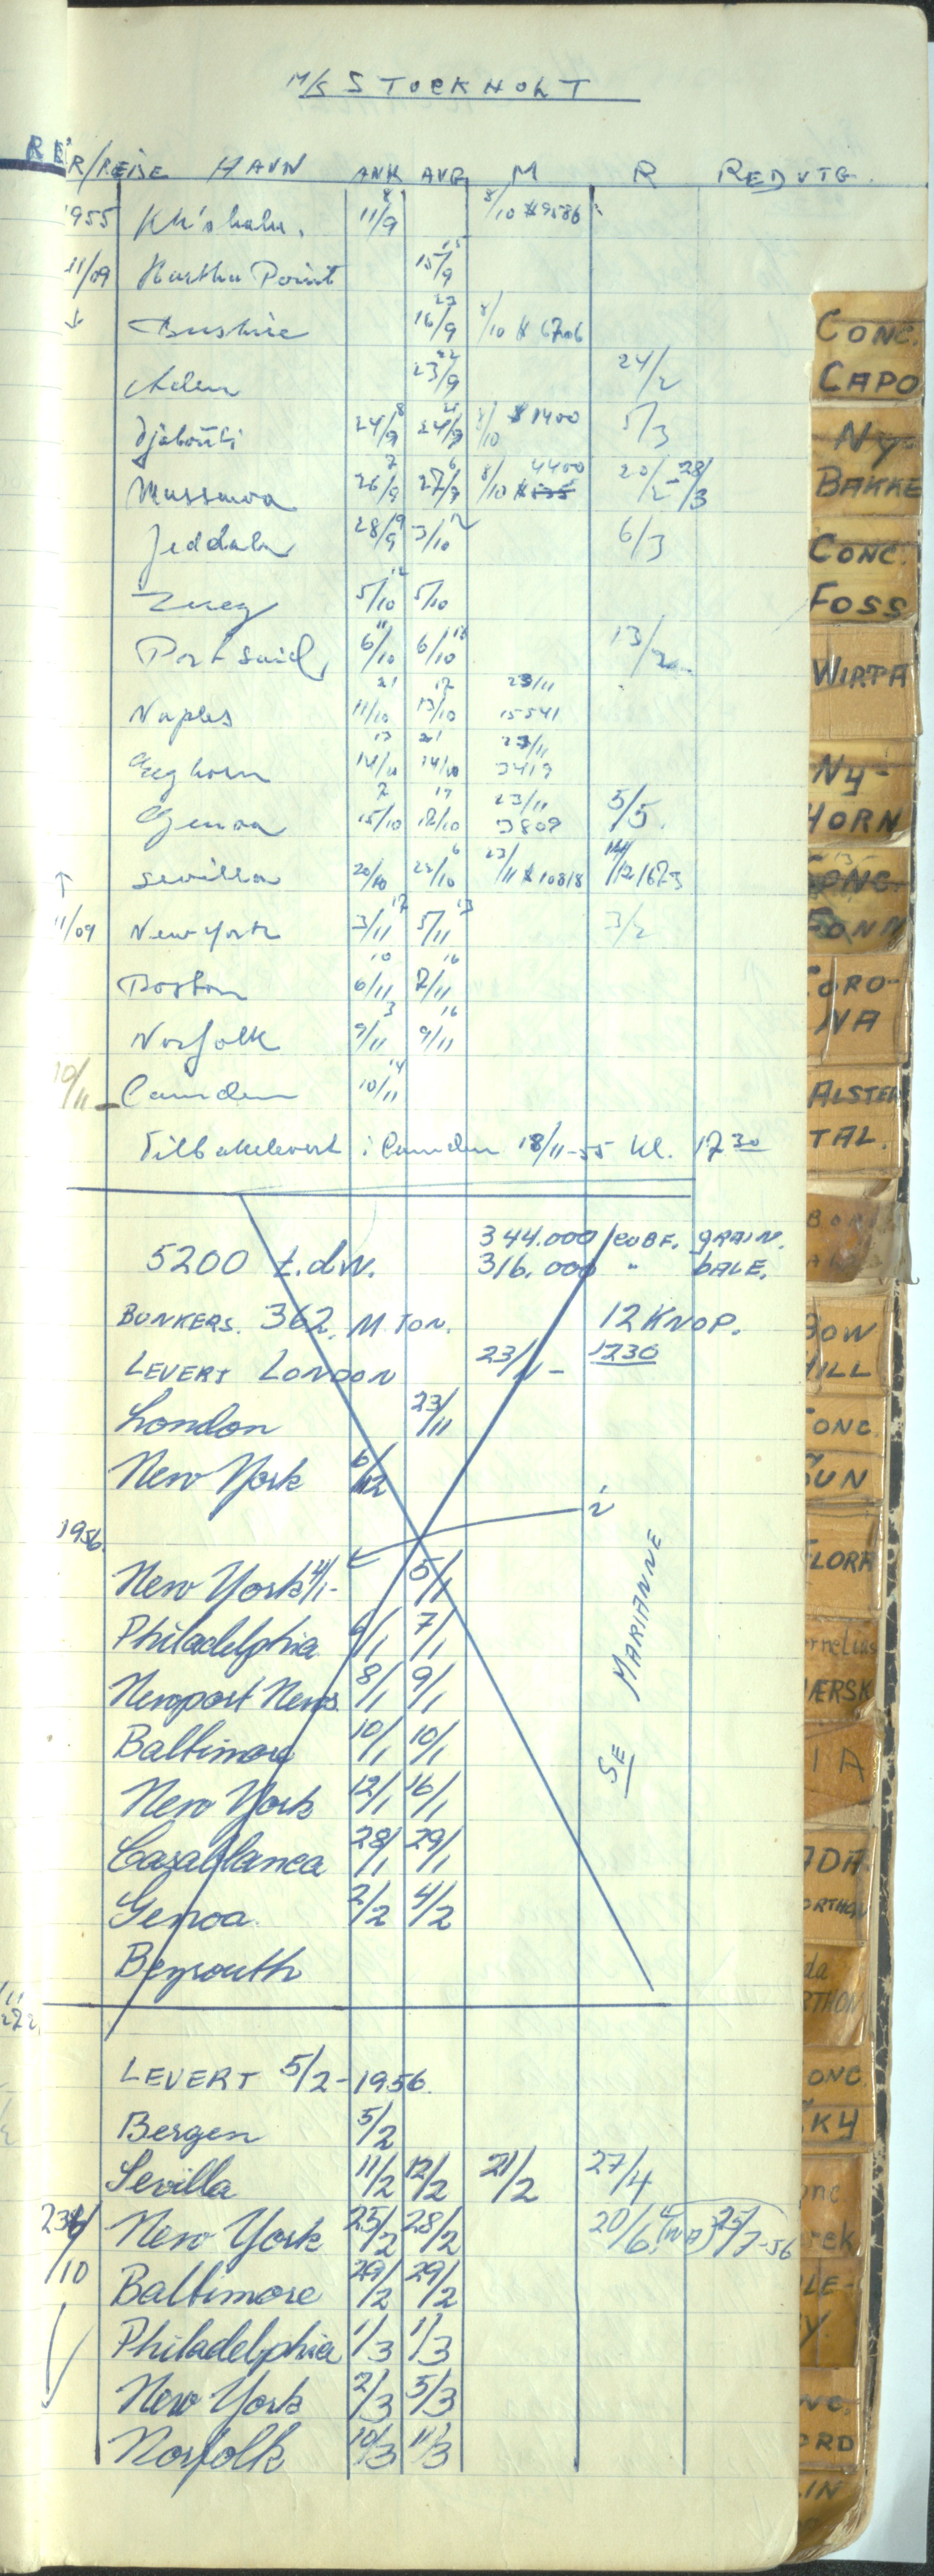 M/S STOCKHOLT
R/REISE HAVN ANK AVG M R RED UTG.
1955 Kh's hahn. 11/9 8 8/10 $9586
11/09 Point 15/9
↓ Bushire 16/9 23 8/10 $ 6706
Aden 23/9 22 24/2
Djibouti 24/9 8 24/9 21 8/10 $1400 5/3
Massawa 26/9 7 27/9 6 8/10 4400 20/2 - 28/3
Jeddah 28/9 19 3/10 12 6/3
Suez 5/10 12 5/10
Port Said, 6/10 11 6/10 13/2
Naples 11/10 21 13/10 12 23/11 15541
Leghorn 14/10 13 14/10 21 23/11 3419
Genoa 15/10 7 18/10 17 23/11 3809 5/5.
↑ Sevilla 20/10 6 23/11 $10818
11/09 New York 3/11 17 5/11 13 3/2
Boston 6/11 10 7/11 16
Norfolk 9/11 3 9/11 16
10/11 - Camden 10/11 14
Tilbakelevert i Camden 18/11-55 Kl. 1730
344.000 CUBF. GRAIN.
5200 t.dw. 316.000 " BALE.
BUNKERS. 362. M TON. 12 KNOP.
LEVERT LONDON 23/11 - 1730
London 23/11
New York 6/12
1956.
New York 4/1- 5/1
Philadelphia 6/1 7/1
Newport News 8/1 9/1
Baltimore 10/1 10/1
New York 12/1 16/1
Casablanca 28/1 29/1
Genoa. 2/2 4/2
Beyrouth
SE MARIANNE
LEVERT 5/2-1956.
Bergen 5/2
Sevilla 11/2 12/2 21/2 27/4
New York 25/2 28/2 20/6 25/7-56
/10 Baltimore 29/2 29/2
Philadelphia 1/3 1/3
New York 2/3 5/3
Norfolk 10/3 11/3
CONC.
CAPO
NY-
BAKKE
CONC.
FOSS
WIRTA
NY-
HORN
CONC.
FONN
CORO-
NA
ALSTER
TAL.
BOW
HILL
CONC.
SUN
FLORA
Cornelius
MÆRSK
IA
ADA
ORTHON
da
RTHON
CONC.
SKY